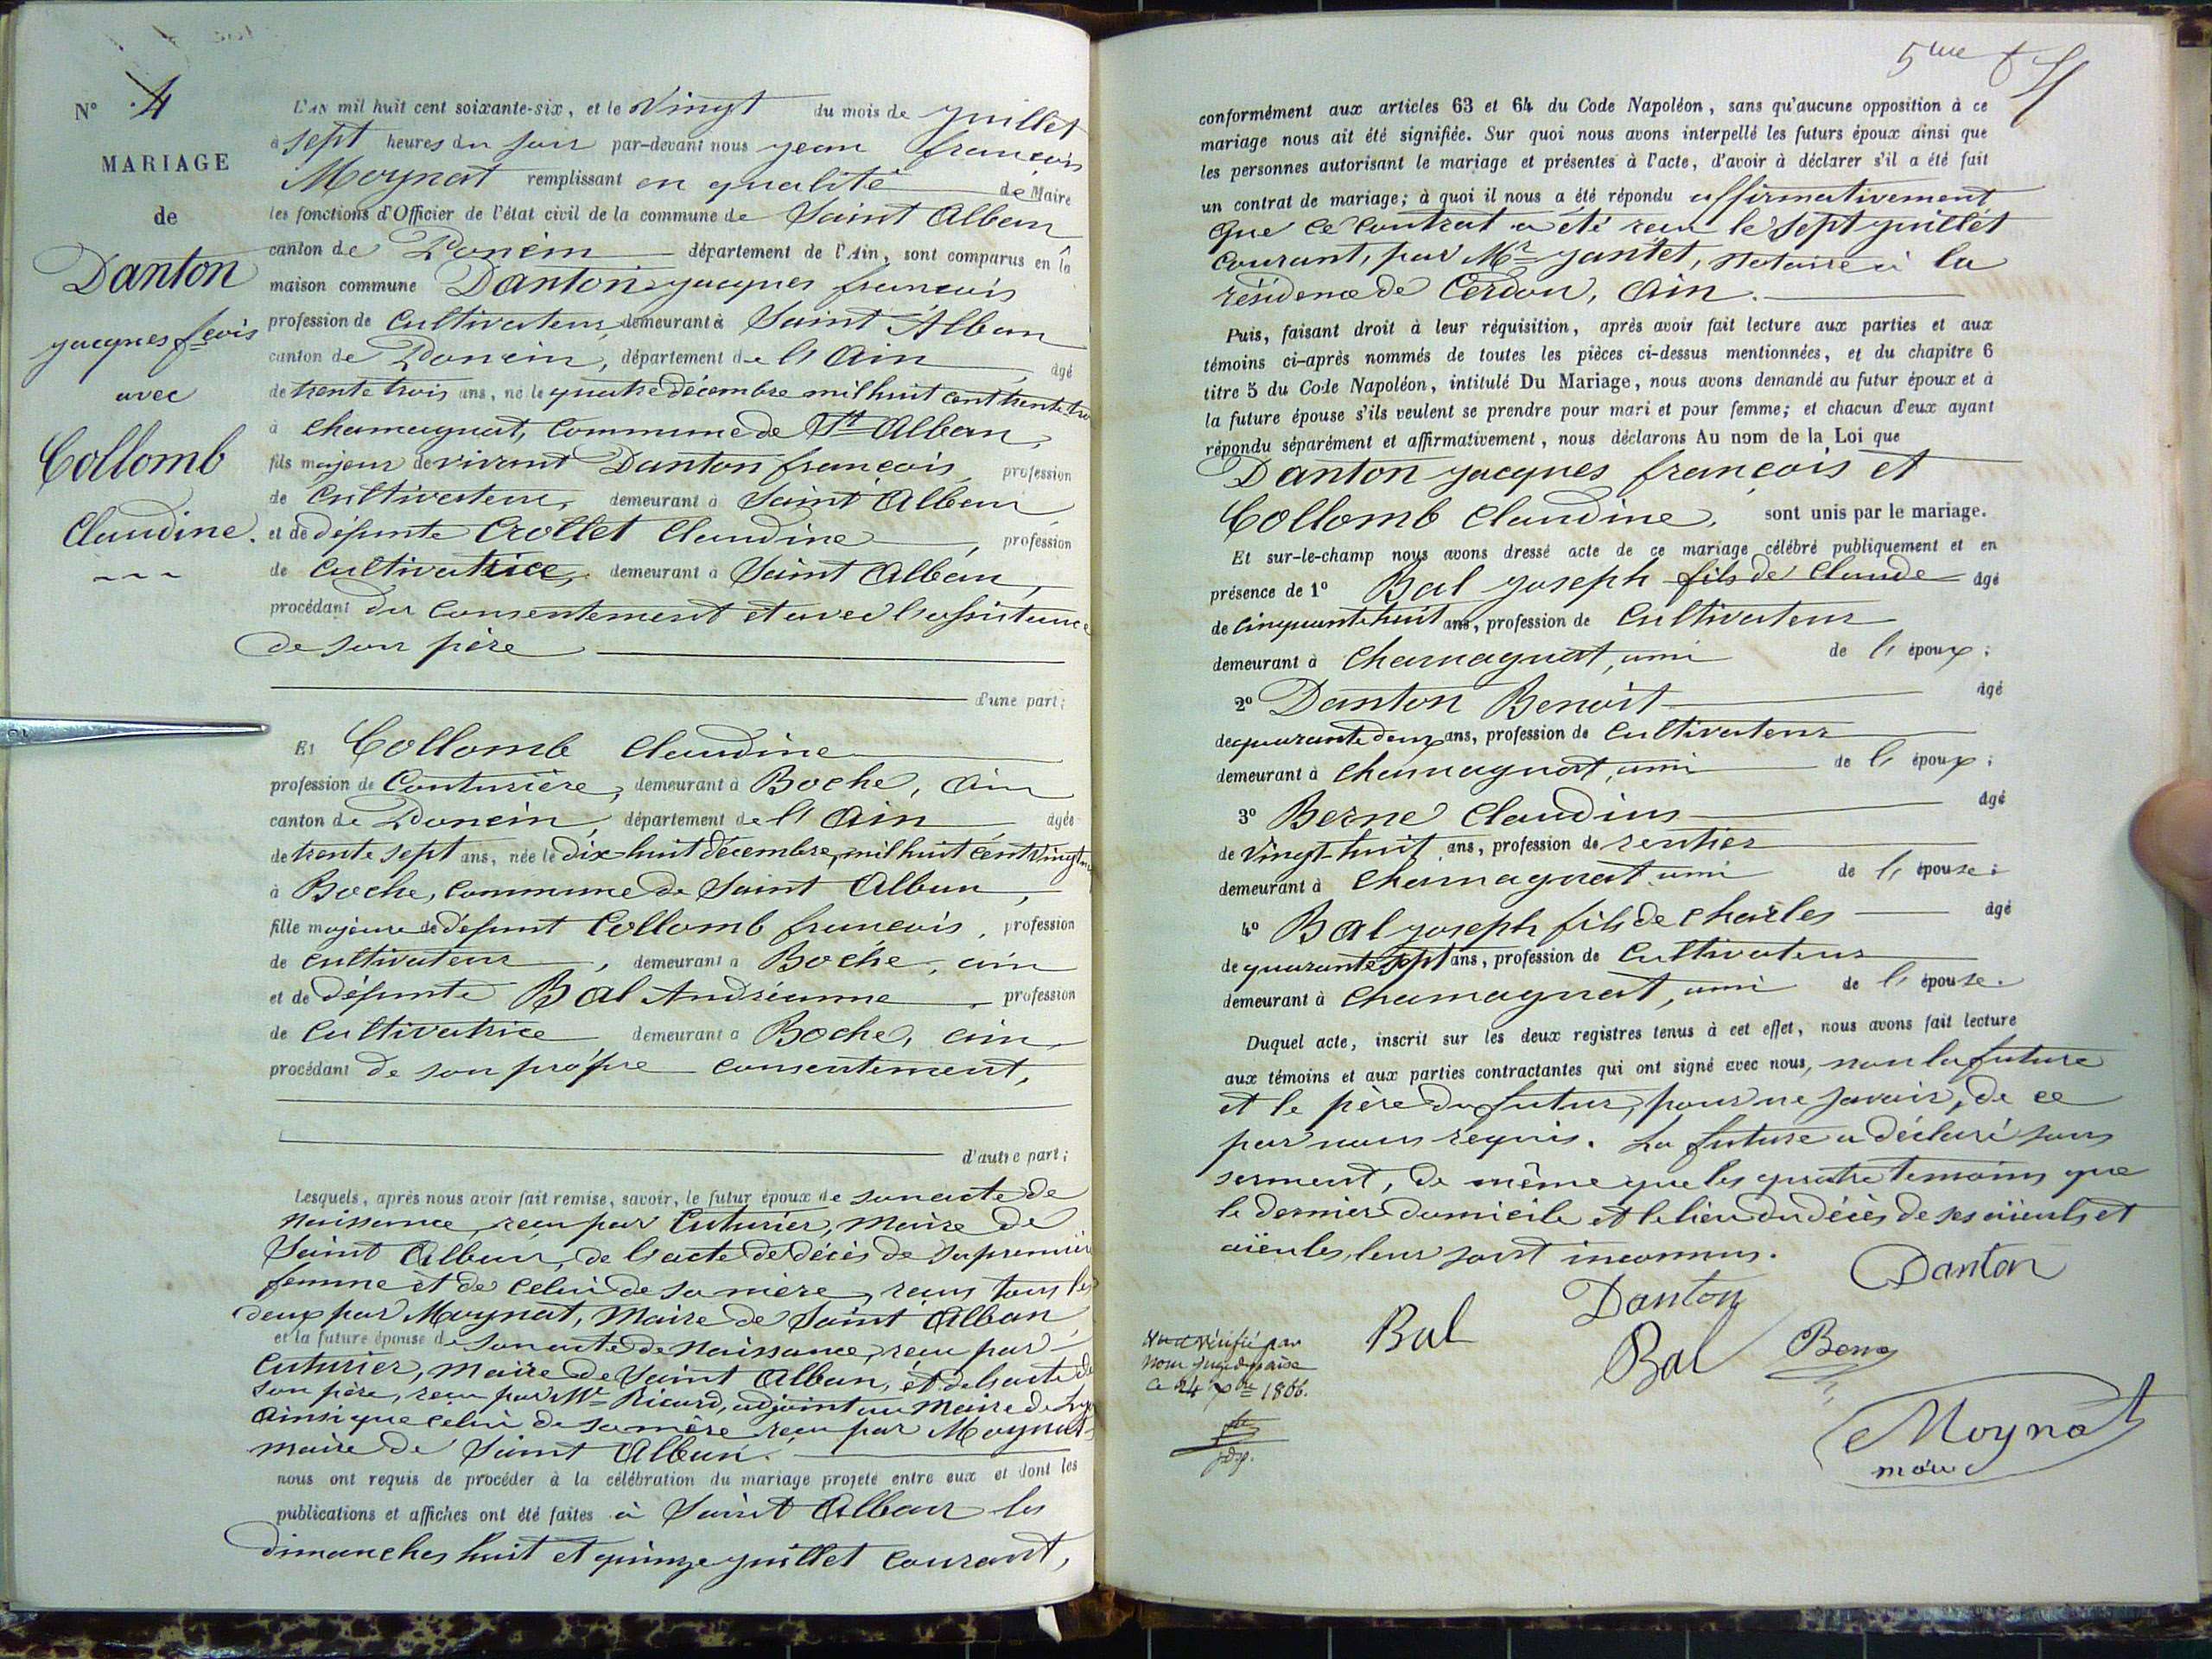 N° 4
MARIAGE
de
Danton
jacques fçois
avec
Collomb
Claudine.
L'AN mil huit cent soixante-six, et le Vingt du mois de juillet
à sept heures du soir par-devant nous jean francois
Moynat remplissant en qualité de Maire
les fonctions d'Officier de l'état civil de la commune de Saint Alban
canton de Poncin département de l'Ain, sont comparus en la
maison commune Danton jacques francois
profession de Cultivateur, demeurant à Saint Alban
canton de Poncin, département de l'Ain, âgé
de trente trois ans, né le quatre décembre mil huit cent trente
à Chamagnat, Commune de St Alban,
fils majeur de vivant Danton francois, profession
de Cultivateur, demeurant à Saint Alban
et de défunte Crollet Claudine, profession
de Cultivatrice, demeurant à Saint Alban,
procédant du Consentement et avec l'assistance
de son père
d'une part;
Et Collomb Claudine
profession de Couturière, demeurant à Boche, Ain
canton de Poncin, département de l'Ain, âgée
de trente sept ans, née le dix-huit décembre, mil huit cent vingt
à Boche, Commune de Saint Alban,
fille majeure de défunt Collomb francois, profession
de Cultivateur, demeurant à Boche, ain
et de défunte Bal Andréanne, profession
de Cultivatrice demeurant à Boche, ain,
procédant de son propre consentement,
d'autre part;
Lesquels, après nous avoir fait remise, savoir, le futur époux de son acte de
naissance, reçu par Cuturier, Maire de
Saint Alban, de l'acte de décès de sa première
femme et de celui de sa mère, reçus tous les
deux par Moynat, Maire de Saint Alban,
et la future épouse de son acte de Naissance, reçu par
Cuturier, Maire de Saint Alban, et de l'acte de
son père, reçu par Mr Ricard, adjoint au Maire de
Ainsi que celui de sa mère reçu par Moynat
maire de Saint Alban.
nous ont requis de procéder à la célébration du mariage projeté entre eux et dont les
publications et affiches ont été faites à Saint Alban les
dimanches huit et quinze juillet courant,
5me
conformément aux articles 63 et 64 du Code Napoléon, sans qu'aucune opposition à ce
mariage nous ait été signifiée. Sur quoi nous avons interpellé les futurs époux ainsi que
les personnes autorisant le mariage et présentes à l'acte, d'avoir à déclarer s'il a été fait
un contrat de mariage; à quoi il nous a été répondu affirmativement
que ce contrat a été reçu le sept juillet
courant, par Mr jantet, Notaire à la
résidence de Cerdon, Ain.
Puis, faisant droit à leur réquisition, après avoir fait lecture aux parties et aux
témoins ci-après nommés de toutes les pièces ci-dessus mentionnées, et du chapitre 6
titre 5 du Code Napoléon, intitulé Du Mariage, nous avons demandé au futur époux et à
la future épouse s'ils veulent se prendre pour mari et pour femme; et chacun d'eux ayant
répondu séparément et affirmativement, nous déclarons Au nom de la Loi que
Danton jacques françois et
Collomb Claudine, sont unis par le mariage.
Et sur-le-champ nous avons dressé acte de ce mariage célébré publiquement et en
présence de 1° Bal joseph fils de Claude âgé
de Cinquante huit ans, profession de Cultivateur
demeurant à Chamagnat, ami de l'époux;
2° Danton Benoit âgé
de quarante deux ans, profession de Cultivateur
demeurant à Chamagnat, ami de l'époux;
3° Berne Claudius âgé
de Vingt-huit ans, profession de rentier
demeurant à Chamagnat ami de l'épouse;
4° Bal joseph fils de Charles âgé
de quarante sept ans, profession de Cultivateur
demeurant à Chamagnat, ami de l'épouse.
Duquel acte, inscrit sur les deux registres tenus à cet effet, nous avons fait lecture
aux témoins et aux parties contractantes qui ont signé avec nous, non la future
et le père du futur, pour ne savoir, de ce
par nous requis. La future a déclaré sous
serment, de même que les quatre temoins que
le dernier domicile et le lieu du décès de ses aïeuls et
aïeules, leur sont inconnus.
Danton
Danton
Bal
Bal
Berne
Vérifié par
nous juge de paix
ce 24 xbre 1866.
Moynat
maire